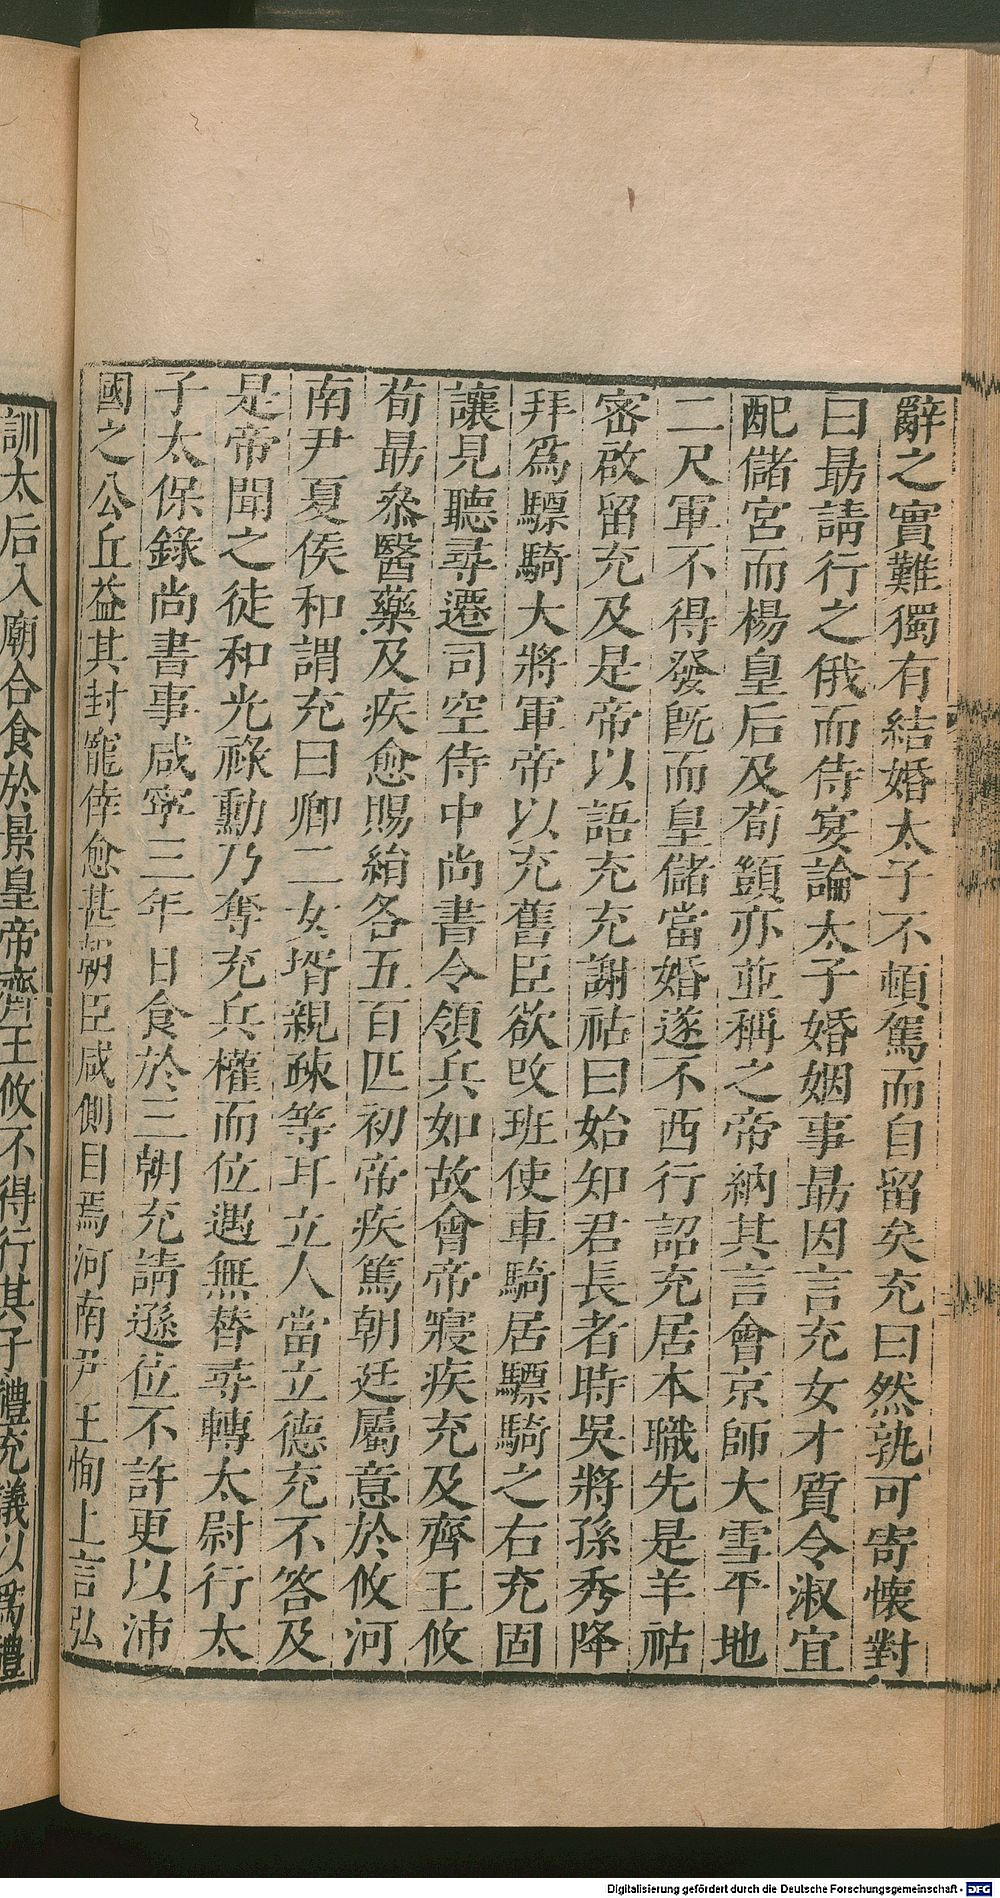 辭之實難獨有結婚太子不頓駕而自留矣充曰然孰可寄懷對
曰勗請行之俄而侍宴論太子婚姻事勗因言充女才質令淑宜
配儲宮而楊皇后及荀顗亦並稱之帝納其言會京師大雪平地
二尺軍不得發旣而皇儲當婚遂不西行詔充居本職先是羊祜
密啟留充及是帝以語充充謝祜曰始知君長者時吳將孫秀降
拜爲驃騎大將軍帝以充舊臣欲改班使車騎居驃騎之右充固
讓見聽尋遷司空侍中尚書令領兵如故會帝寢疾充及齊王攸
荀勗叅醫藥及疾愈賜絹各五百匹初帝疾篤朝廷屬意於攸河
南尹夏侯和謂充曰卿二女壻親疎等耳立人當立德充不答及
是帝聞之徒和光祿勳乃奪充兵權而位遇無替尋轉太尉行太
子太保錄尚書事咸寧三年日食於三朝充請遜位不許更以沛
國之公丘益其封寵倖愈甚朝臣咸側目焉河南尹王恂上言弘
訓太后入廟合食於景皇帝齊王攸不得行其子禮充議以爲禮
Digitalisierung gefördert durch die Deutsche Forschungsgemeinschaft - DFG